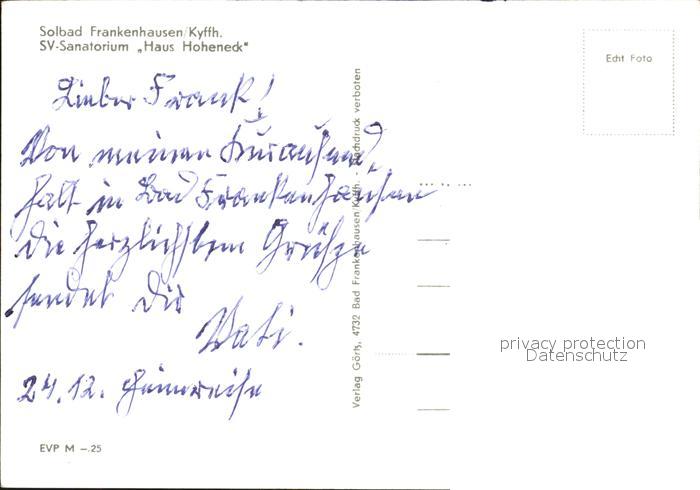 Solbad Frankenhausen/Kyffh.
SV-Sanatorium „Haus Hoheneck"
Echt Foto
Lieber Frank!
Von meinem Kuraufent,
halt in Bad Frankenhausen
die herzlichsten Grüße
sendet Dir
Vati.
24.12. Heimreise
Verlag Görtz, 4732 Bad Frankenhausen/Kyffh. - Nachdruck verboten
privacy protection
Datenschutz
EVP M –.25